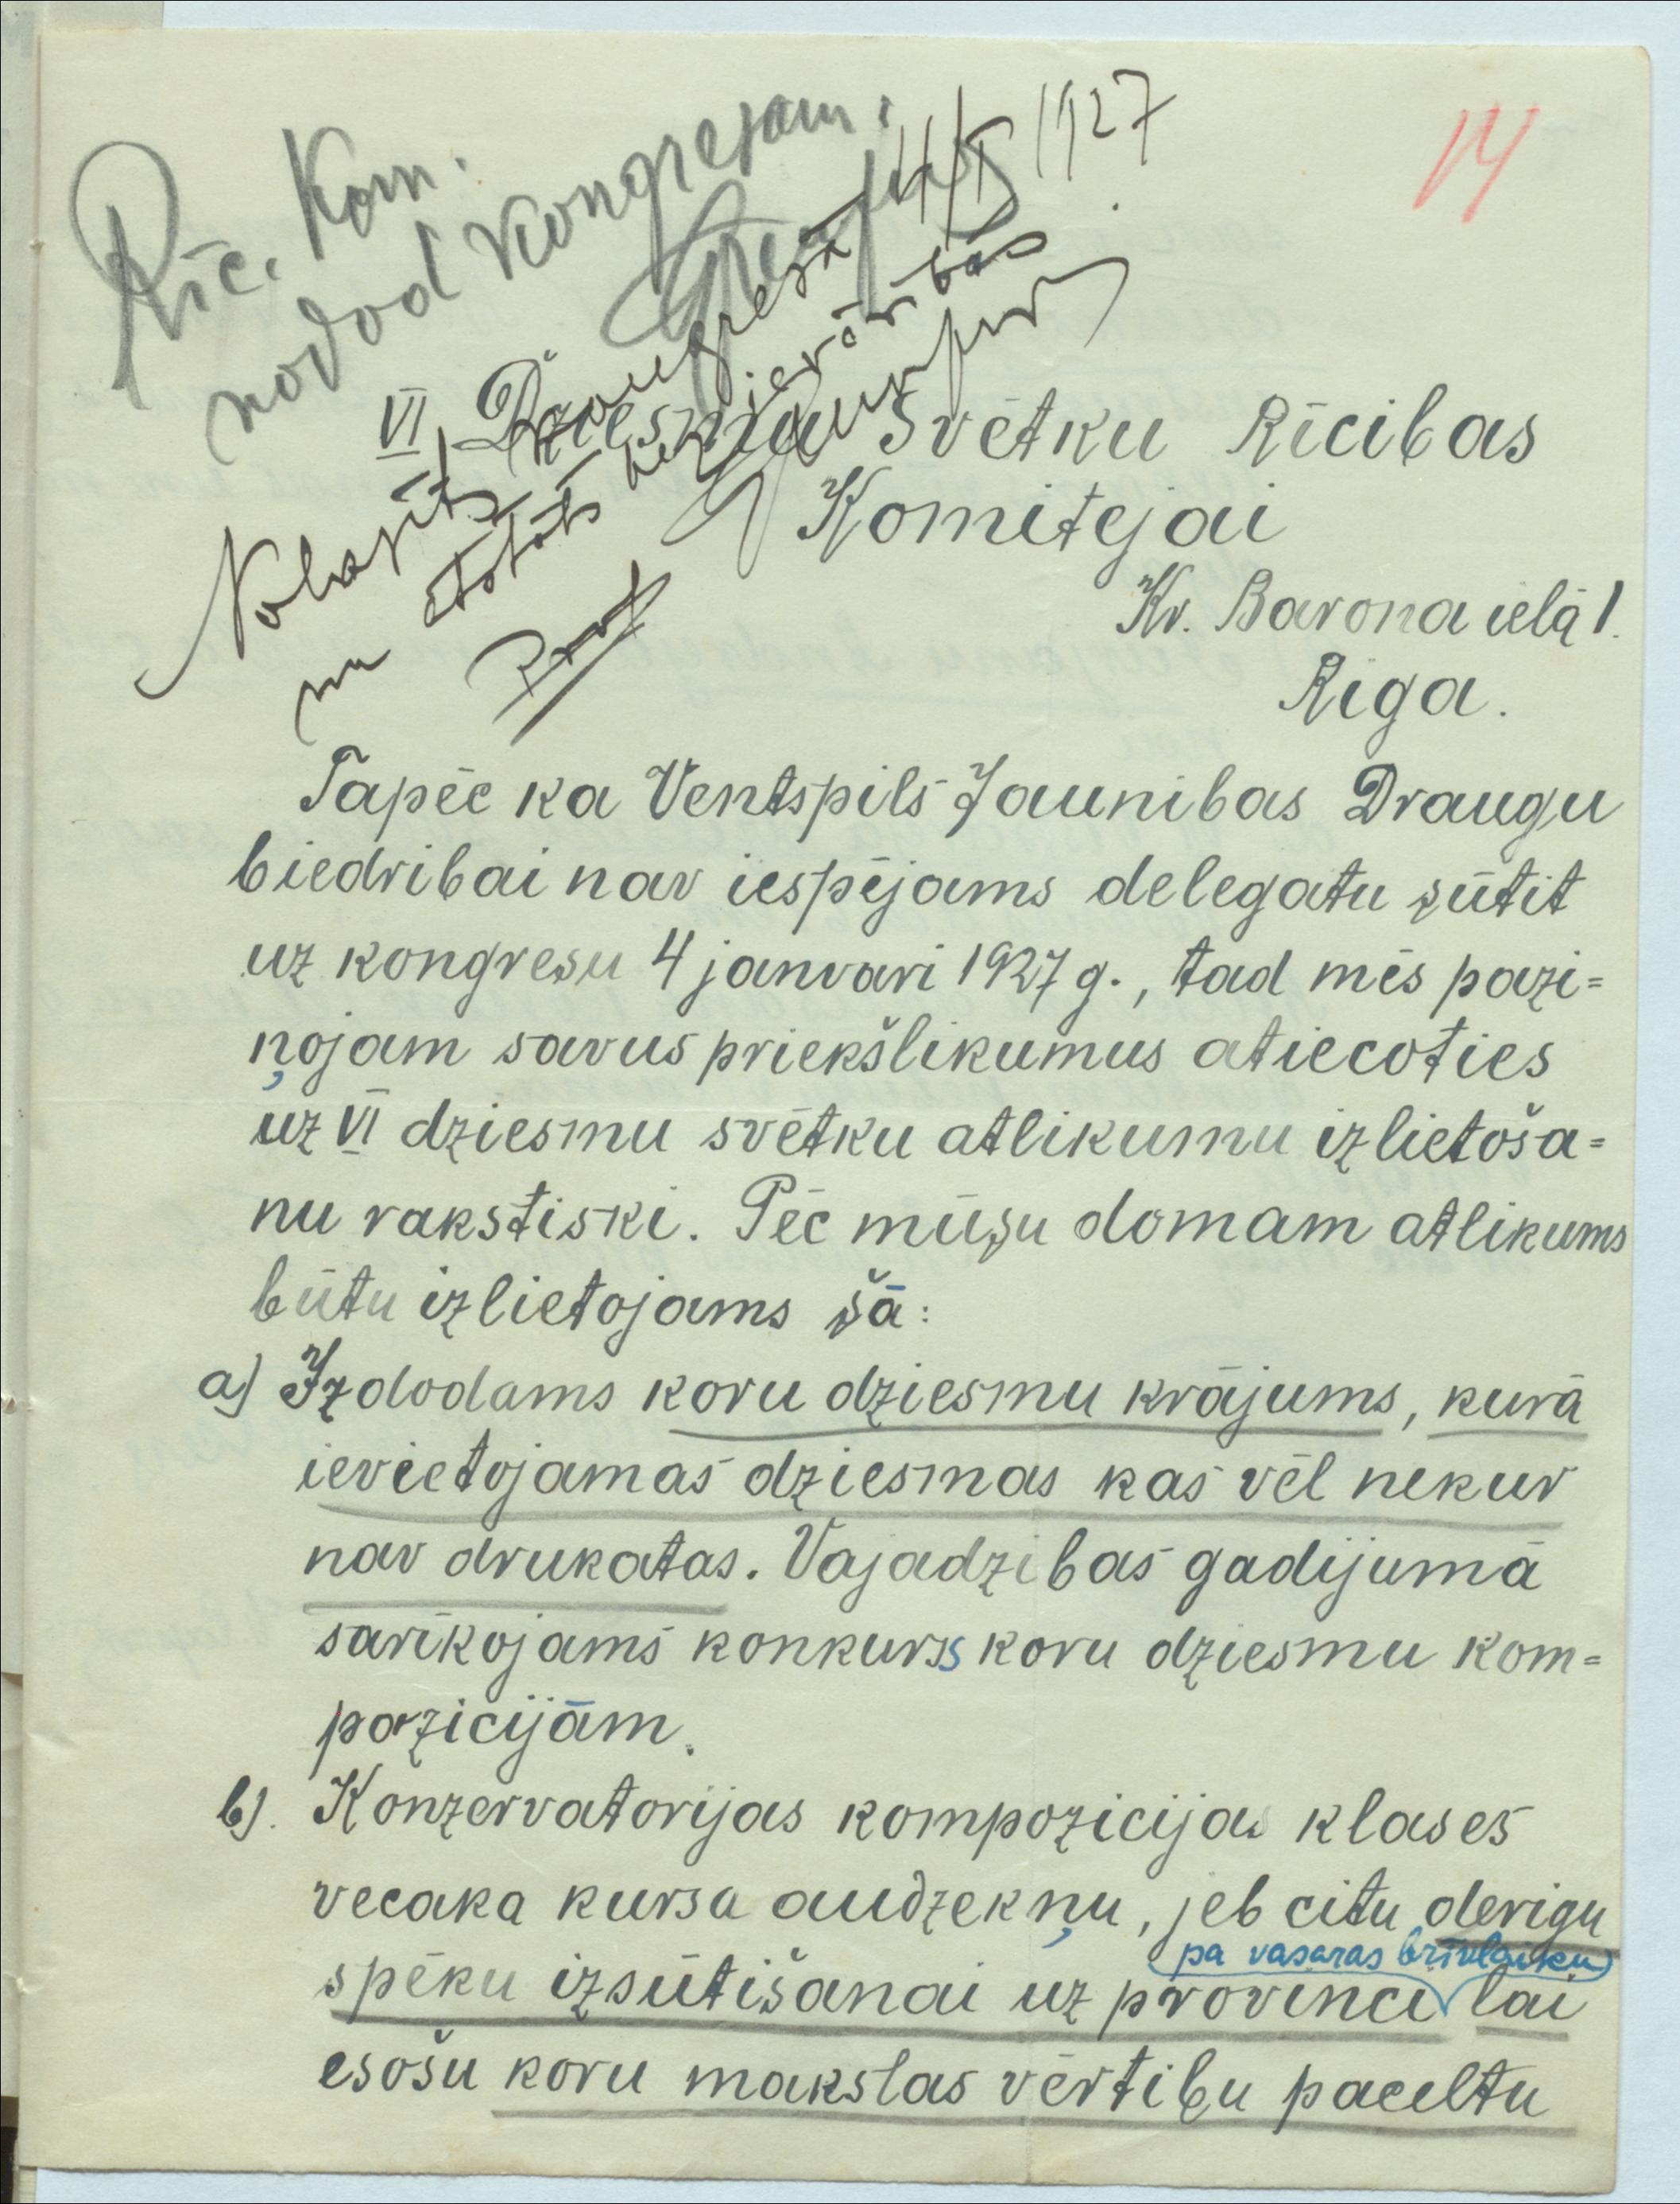 14
Rīc. Kom.
nodod kongresam.
Nolasīts kongresā 4/I 1927
un atstāts bez ievērības.
VI Dziesmu Svētku Rīcibas
Komitejai
Kr. Barona ielā 1.
Riga.
Tapēc ka Ventspils Jaunibas Draugu
biedribai nav iespējams delegatu sūtit
uz kongresu 4 janvari 1927 g., tad mēs pazi=
ņojam savus priekšlikumus atiecoties
uz VI dziesmu svētku atlikumu izlietoša=
nu rakstiski. Pēc mūsu domam atlikums
būtu izlietojams šā:
a) Izdodams koru dziesmu krājums, kurā
ievietojamas dziesmas kas vēl nekur
nav drukatas. Vajadzibas gadijumā
sarīkojams konkurss koru dziesmu kom=
pozicijām.
b). Konzervatorijas kompozicijas klases
vecaka kursa audzekņu, jeb citu derigu
pa vasaras brīvlaiku
spēku izsūtišanai uz provinci lai
esošu koru makslas vērtibu paceltu